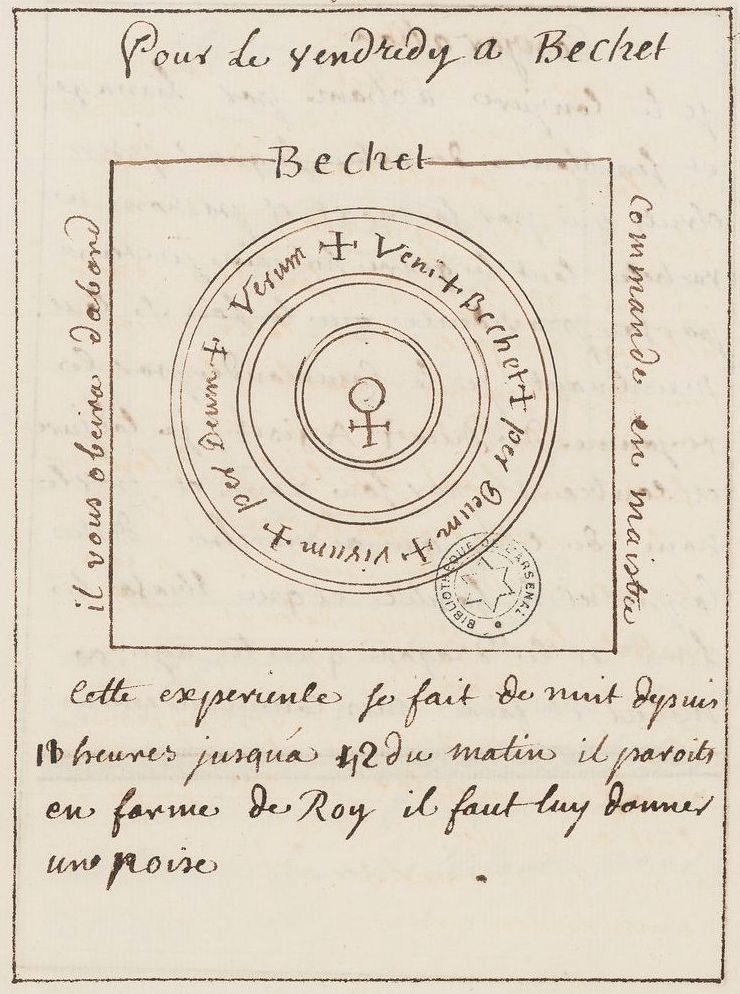 Pour Le vendredy a Bechet
Bechet
il vous obeira dabord
✠ Veni ✠ Bechet ✠ per Deum ✠ vivum ✠ per Deum ✠ Verum
Commande en maistre
BIBLIOTHEQUE DE L'ARSENAL
Cette experience se fait de nuit depuis
heures jusqu'a du matin il paroits
en forme de Roy il faut luy donner
une noise